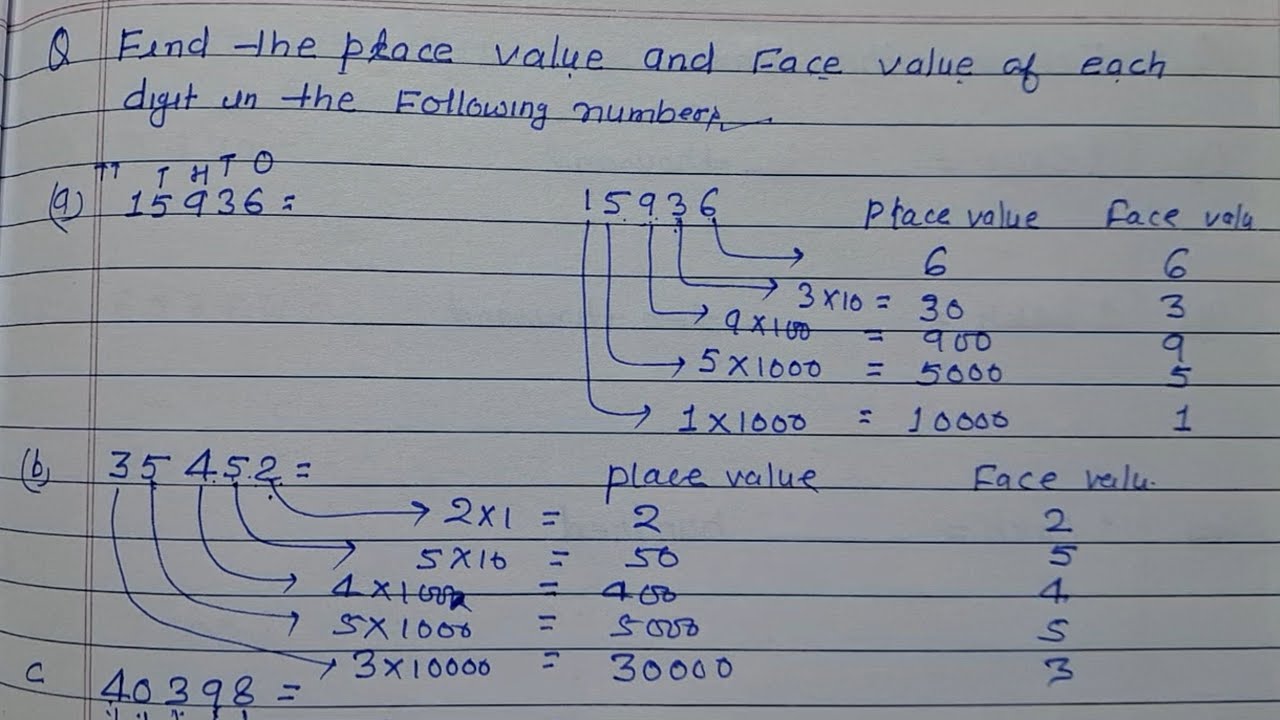 Q Find the place value and Face value of each
digit in the Following numbers
TT T H T O
(a) 15936 = 15936 place value Face valu
6 6
3 × 10 = 30 3
9 × 100 = 900 9
5 × 1000 = 5000 5
1 × 1000 = 10000 1
(b) 35452 = place value Face valu.
2 × 1 = 2 2
5 × 10 = 50 5
4 × 100 = 400 4
5 × 1000 = 5000 5
3 × 10000 = 30000 3
c 40398 =